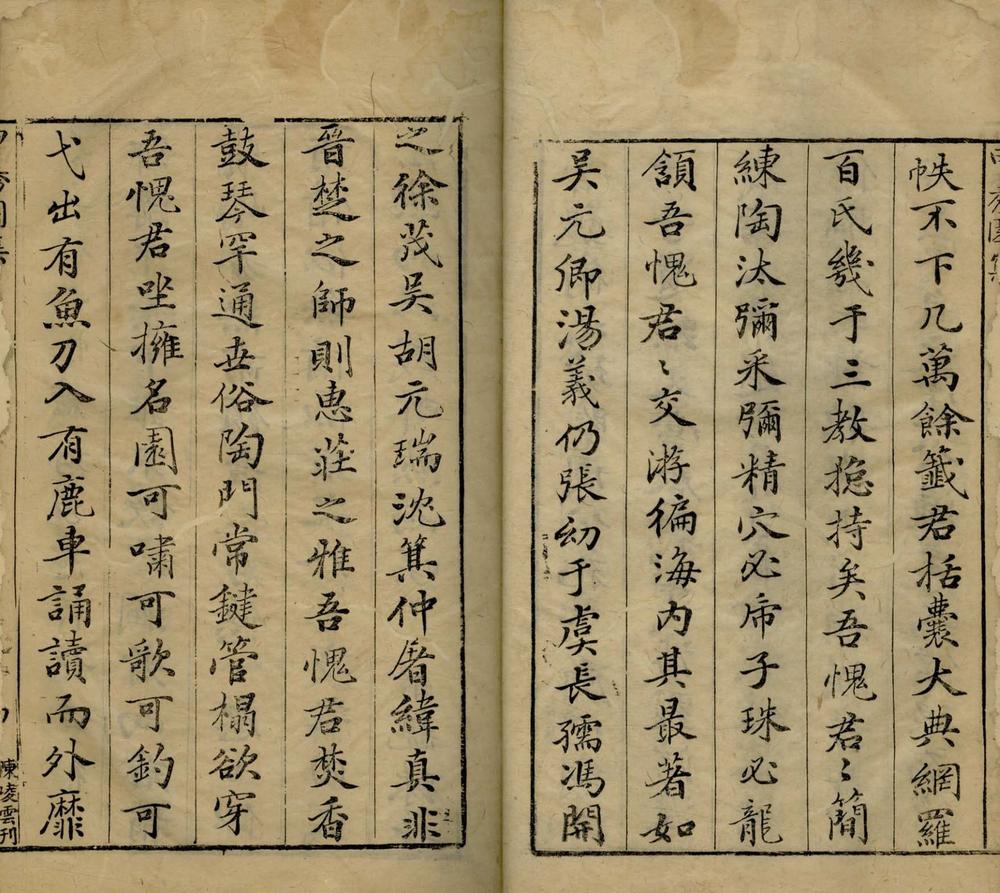 帙不下几萬餘籤君括囊大典網羅
百氏幾于三教揔持矣吾愧君〻簡
練陶汰彌采彌精穴必帝子珠必龍
頷吾愧君〻交游徧海内其最著如
吳元卿湯義仍張幼于虞長孺馮開
之徐茂吳胡元瑞沈箕仲屠緯真非
晉楚之師則惠莊之雅吾愧君焚香
鼓琴罕通世俗陶門常鍵管榻欲穿
吾愧君坐擁名園可嘯可歌可釣可
弋出有魚刀入有鹿車誦讀而外靡
陳凌雲刊